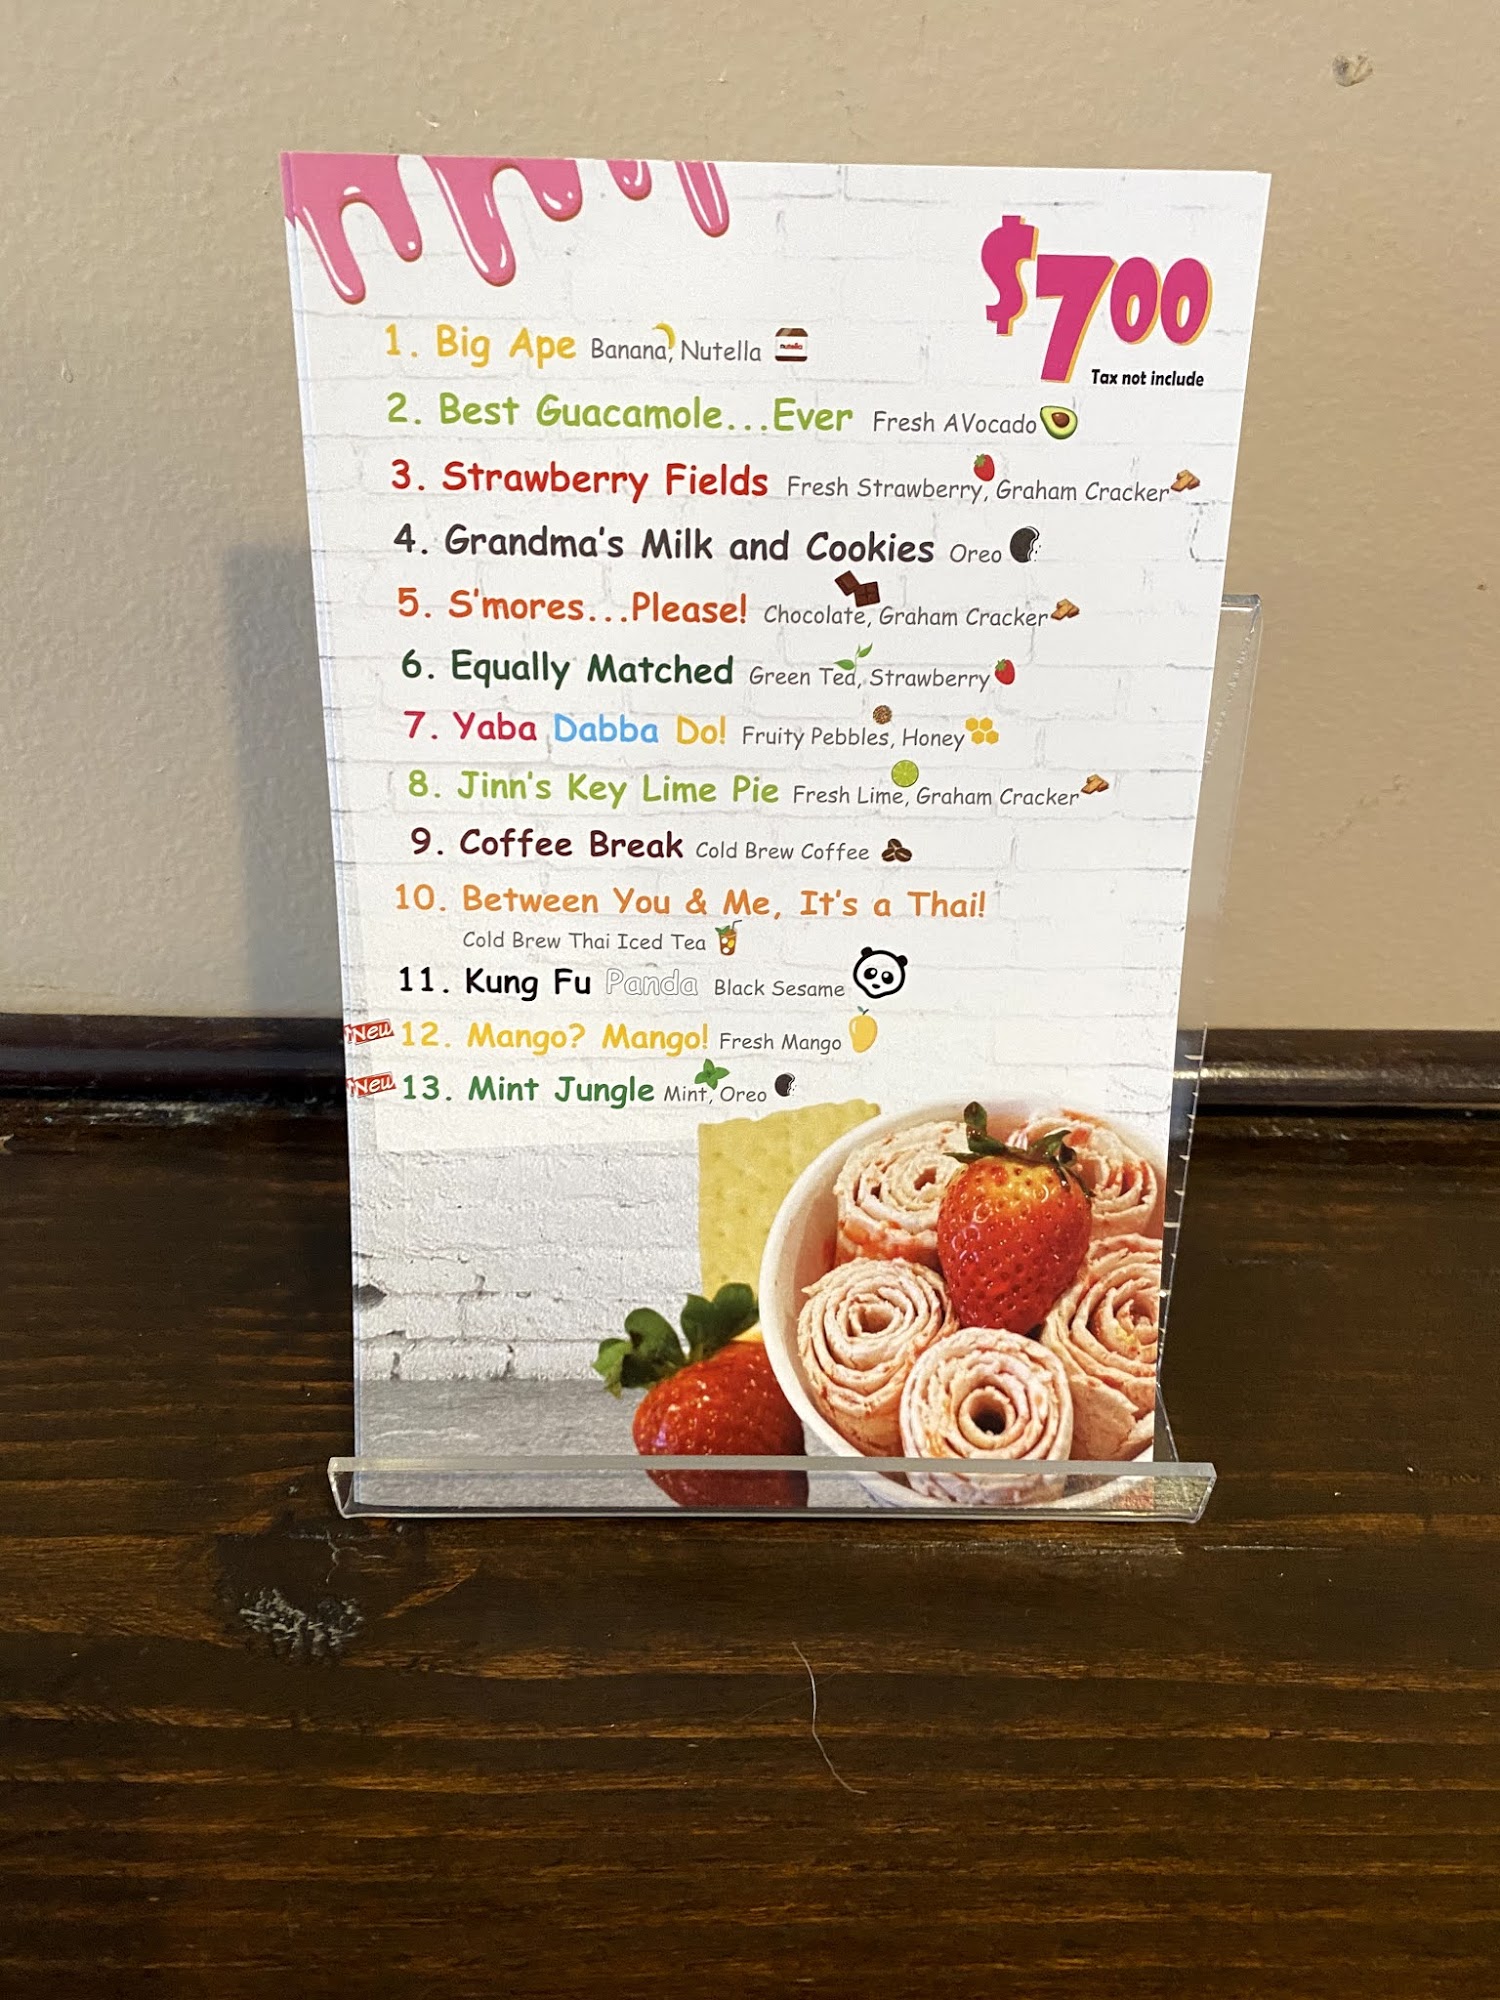 $7.00
Tax not include
1. Big Ape Banana, Nutella nutella
2. Best Guacamole...Ever Fresh AVocado
3. Strawberry Fields Fresh Strawberry, Graham Cracker
4. Grandma's Milk and Cookies Oreo
5. S'mores...Please! Chocolate, Graham Cracker
6. Equally Matched Green Tea, Strawberry
7. Yaba Dabba Do! Fruity Pebbles, Honey
8. Jinn's Key Lime Pie Fresh Lime, Graham Cracker
9. Coffee Break Cold Brew Coffee
10. Between You & Me, It's a Thai!
Cold Brew Thai Iced Tea
11. Kung Fu Panda Black Sesame
New 12. Mango? Mango! Fresh Mango
New 13. Mint Jungle Mint, Oreo